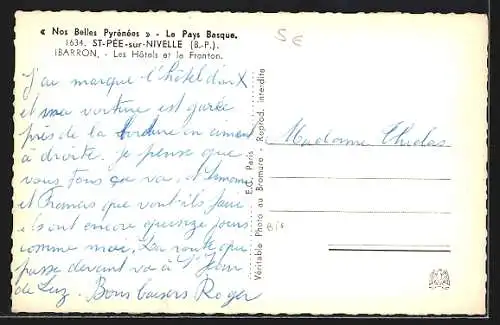 « Nos Belles Pyrénées » - Le Pays Basque.
1634. ST-PÉE-sur-NIVELLE (B.-P.).
IBARRON, - Les Hôtels et le Fronton.
5 €
J'ai marqué l'hôtel d'aix X
et ma voiture est garée
près de la bordure en ciment
à droite. Je pense que
vous tous ça va. et
et que vont-ils faire,
ils ont encore quinze jours
comme moi. La route qui
passe devant va à St Jean
de Luz. Bons baisers Roger
Madame
Véritable Photo au Bromure - Reprod. interdite
E.C. Paris